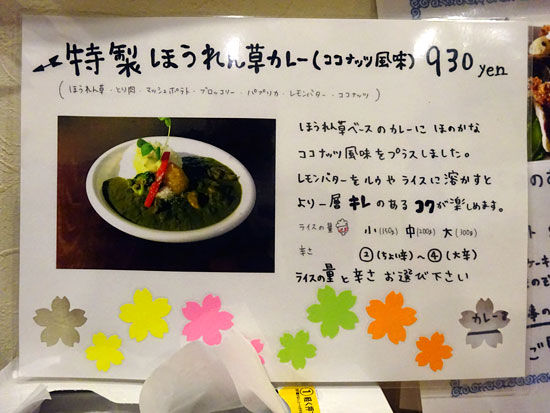 特製 ほうれん草カレー(ココナッツ風味) 930 yen
(ほうれん草・とり肉・マッシュポテト・ブロッコリー・パプリカ・レモンバター・ココナッツ)
ほうれん草ベースのカレーに ほのかな
ココナッツ風味をプラスしました。
レモンバターをルウやライスに溶かすと
より一層 キレのある コクが楽しめます。
ライスの量 小(150g) 中(200g) 大(300g)
辛さ ②(ちょい辛)～④(大辛)
ライスの量と辛さ お選び下さい
カレー